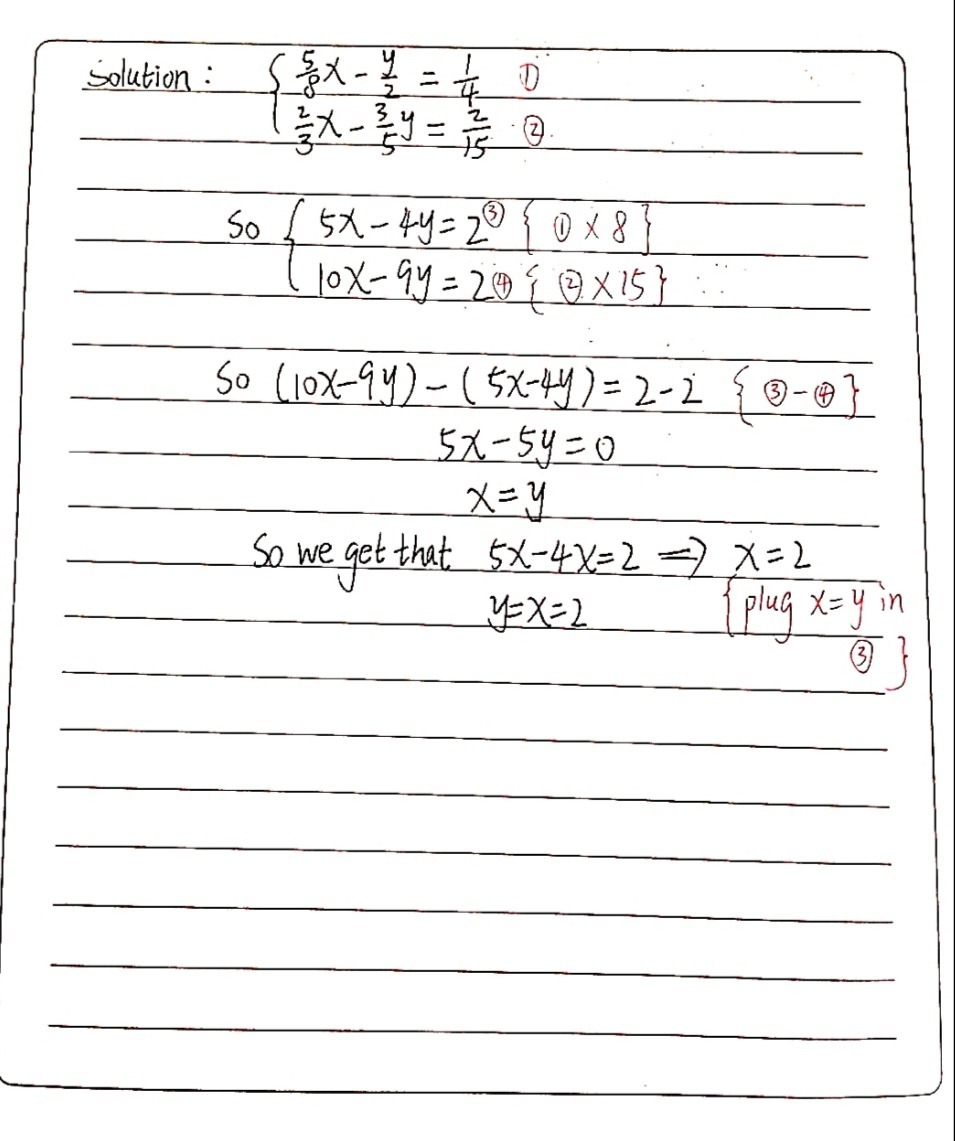 Solution : { 5/8 x - y/2 = 1/4 ①
2/3 x - 3/5 y = 2/15 ②
So { 5x - 4y = 2 ③ { ① × 8 }
10x - 9y = 2 ④ { ② × 15 }
So (10x-9y) - ( 5x-4y ) = 2 - 2 { ③ - ④ }
5x - 5y = 0
x = y
So we get that 5x - 4x = 2 ⇒ x = 2
y = x = 2 { plug x = y in
③ }